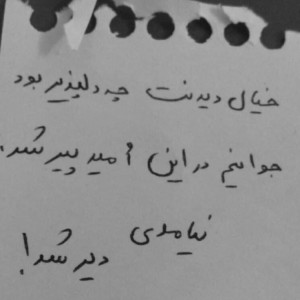 خیال دیدنت چه دلپذیر بود
جوانیم در این امید پیر شد.
نیامدی
دیر شد!